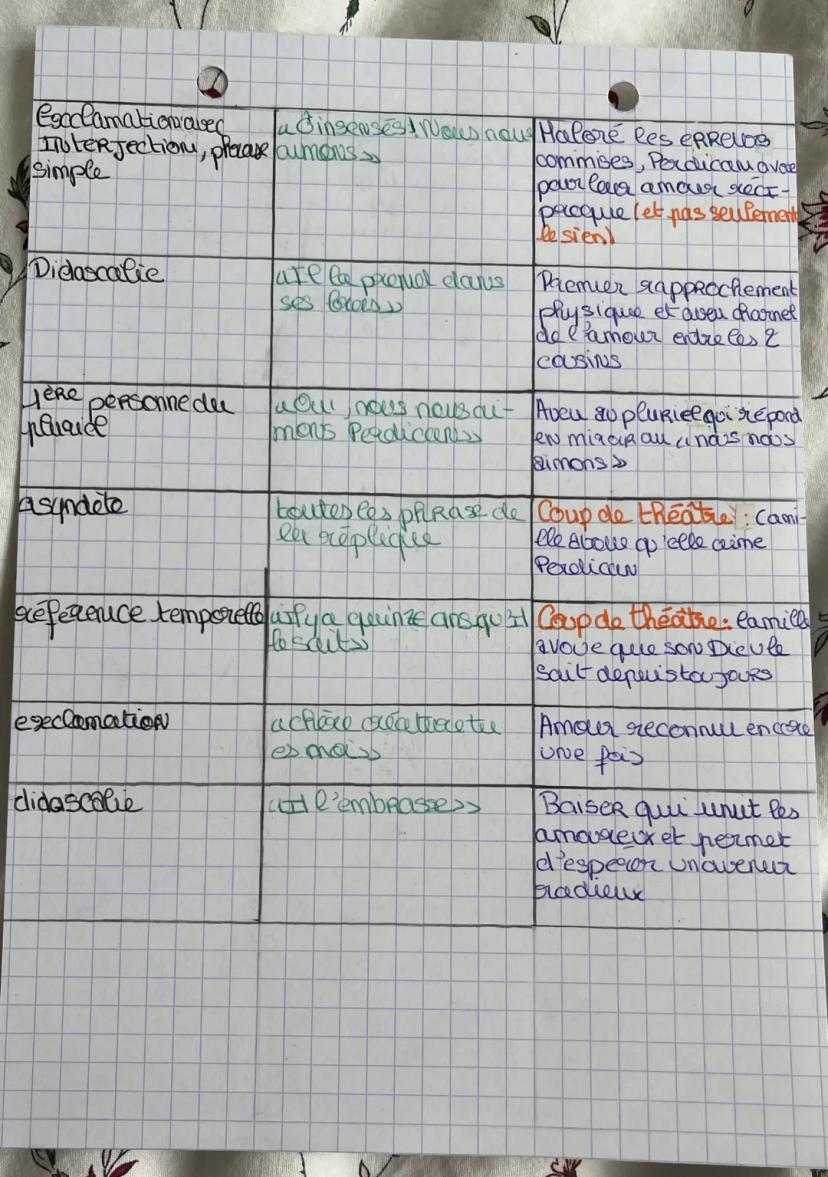 Exclamation avec
Interjection, phrase
simple
«Ô insensés! Nous nous
aimons»
Malgré les erreurs
commises, Perdican avoue
pour leur amour réci-
proque (et pas seulement
le sien)
Didascalie
«Il la prend dans
ses bras»
Premier rapprochement
physique et aveu charnel
de l'amour entre les 2
cousins
1ère personne du
pluriel
«Oui, nous nous ai-
mons Perdican»
Aveu au pluriel qui répond
en miroir au «nous nous
aimons»
asyndète
toutes les phrase de
la réplique
Coup de théâtre: Cami-
lle avoue qu'elle aime
Perdican
référence temporelle
«il y a quinze ans qu'il
le sait»
Coup de théâtre: Camille
avoue que son Dieu le
sait depuis toujours
exclamation
«chère créature tu
es moi»
Amour reconnu encore
une fois
didascalie
«Il l'embrasse»
Baiser qui unit les
amoureux et permet
d'espérer un avenir
radieux